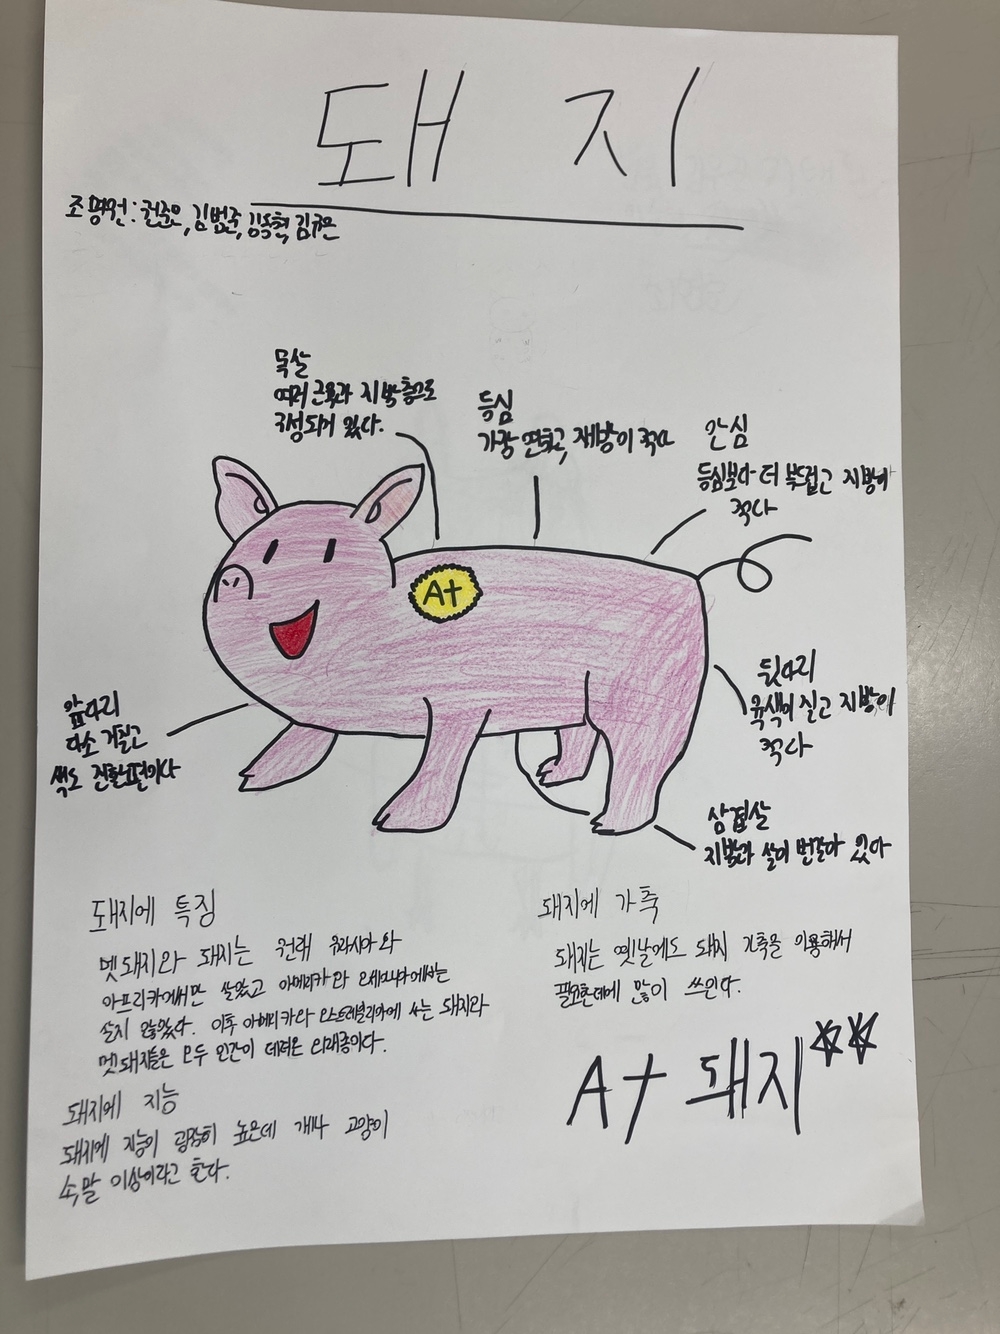 돼지
조 명원: 권준오, 김범준, 김동현, 김규은
목살
여러 근육과 지방층으로
구성되어 있다.
등심
가장 연하고, 지방이 적다
안심
등심보다 더 부드럽고 지방이
적다
A+
뒷다리
육색이 짙고 지방이
적다
앞다리
다소 거칠고
색도 진한편이다
삼겹살
지방과 살이 번갈아 있다
돼지에 특징
멧돼지와 돼지는 원래 유라시아와
아프리카에서만 살았고 아메리카와 오세아니아에서는
살지 않았다. 이후 아메리카와 오스트레일리아에 사는 돼지와
멧돼지들은 모두 인간이 데려온 외래종이다.
돼지에 지능
돼지에 지능이 굉장히 높은데 개나 고양이
수말 이상이라고 한다.
돼지에 가축
돼지는 옛날에도 돼지 가축을 이용해서
필요한데에 많이 쓰인다.
A+ 돼지☆☆